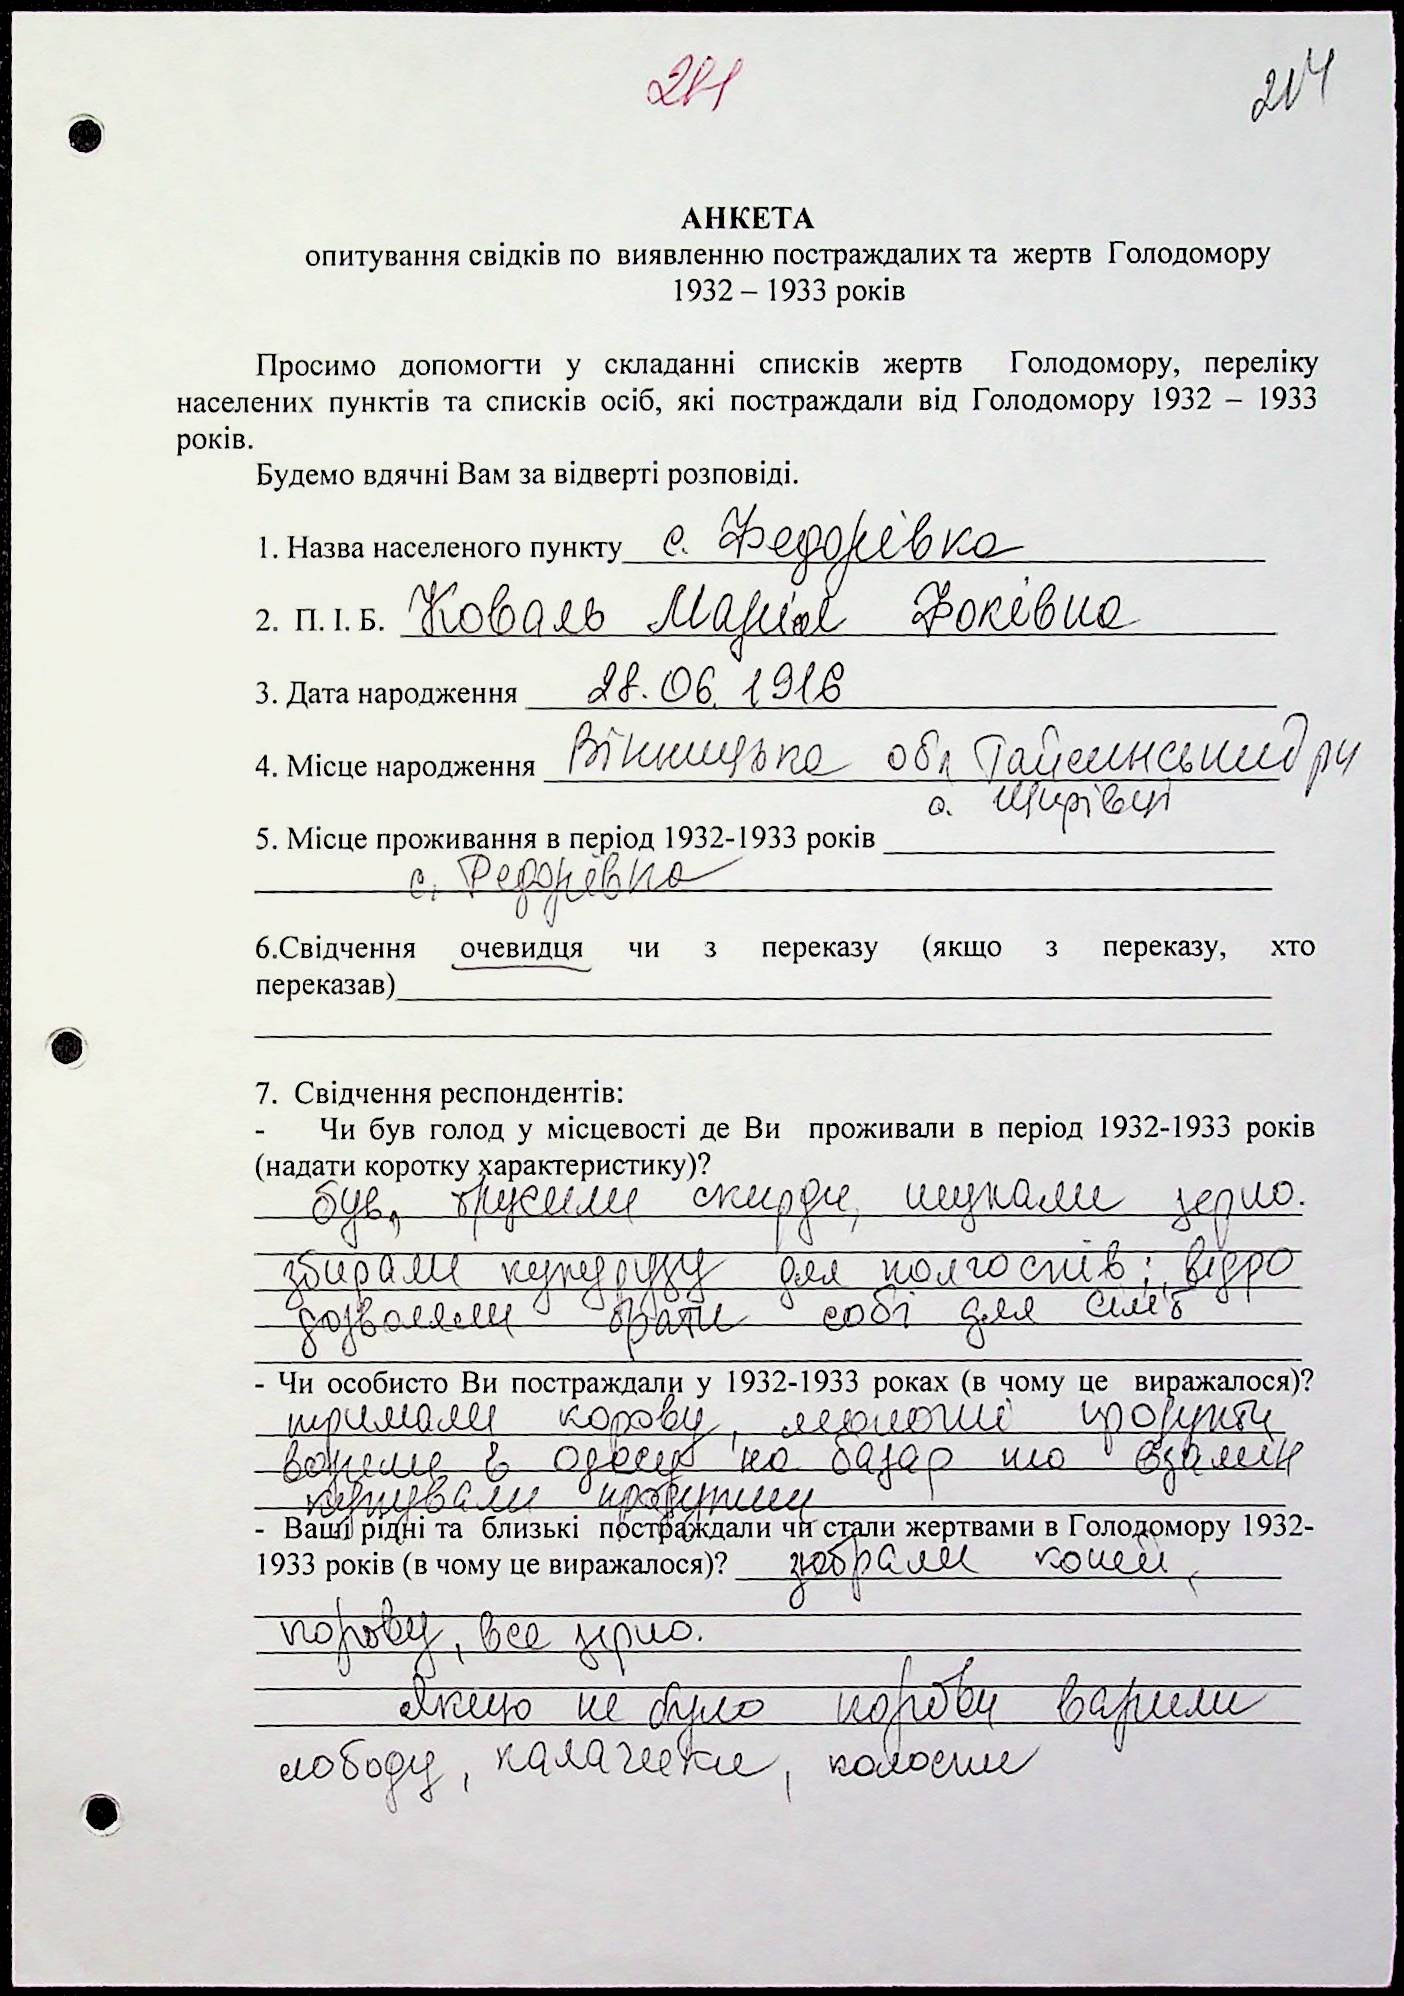 214
АНКЕТА
опитування свідків по виявленню постраждалих та жертв Голодомору
1932 – 1933 років
Просимо допомогти у складанні списків жертв Голодомору, переліку
населених пунктів та списків осіб, які постраждали від Голодомору 1932 – 1933
років.
Будемо вдячні Вам за відверті розповіді.
1. Назва населеного пункту с. Федорівка
2. П. І. Б. Коваль Марія Фоківна
3. Дата народження 28.06.1916
4. Місце народження Вінницька обл Гайсинський рн
с. Щирівці
5. Місце проживання в період 1932-1933 років
с. Федорівка
6.Свідчення очевидця чи з переказу (якщо з переказу, хто
переказав)
7. Свідчення респондентів:
- Чи був голод у місцевості де Ви проживали в період 1932-1933 років
(надати коротку характеристику)?
був, трусили скирди, шукали зерно.
збирали кукурузу для колгоспів; відро
дозволяли брати собі для сім'ї
- Чи особисто Ви постраждали у 1932-1933 роках (в чому це виражалося)?
тримали корову, молочні продукти
возили в Одесу на базар та взамін
купували продукти
- Ваші рідні та близькі постраждали чи стали жертвами в Голодомору 1932-
1933 років (в чому це виражалося)? забрали коней,
корову, все зерно.
Якщо не було корови варили
лободу, калачики, колоски